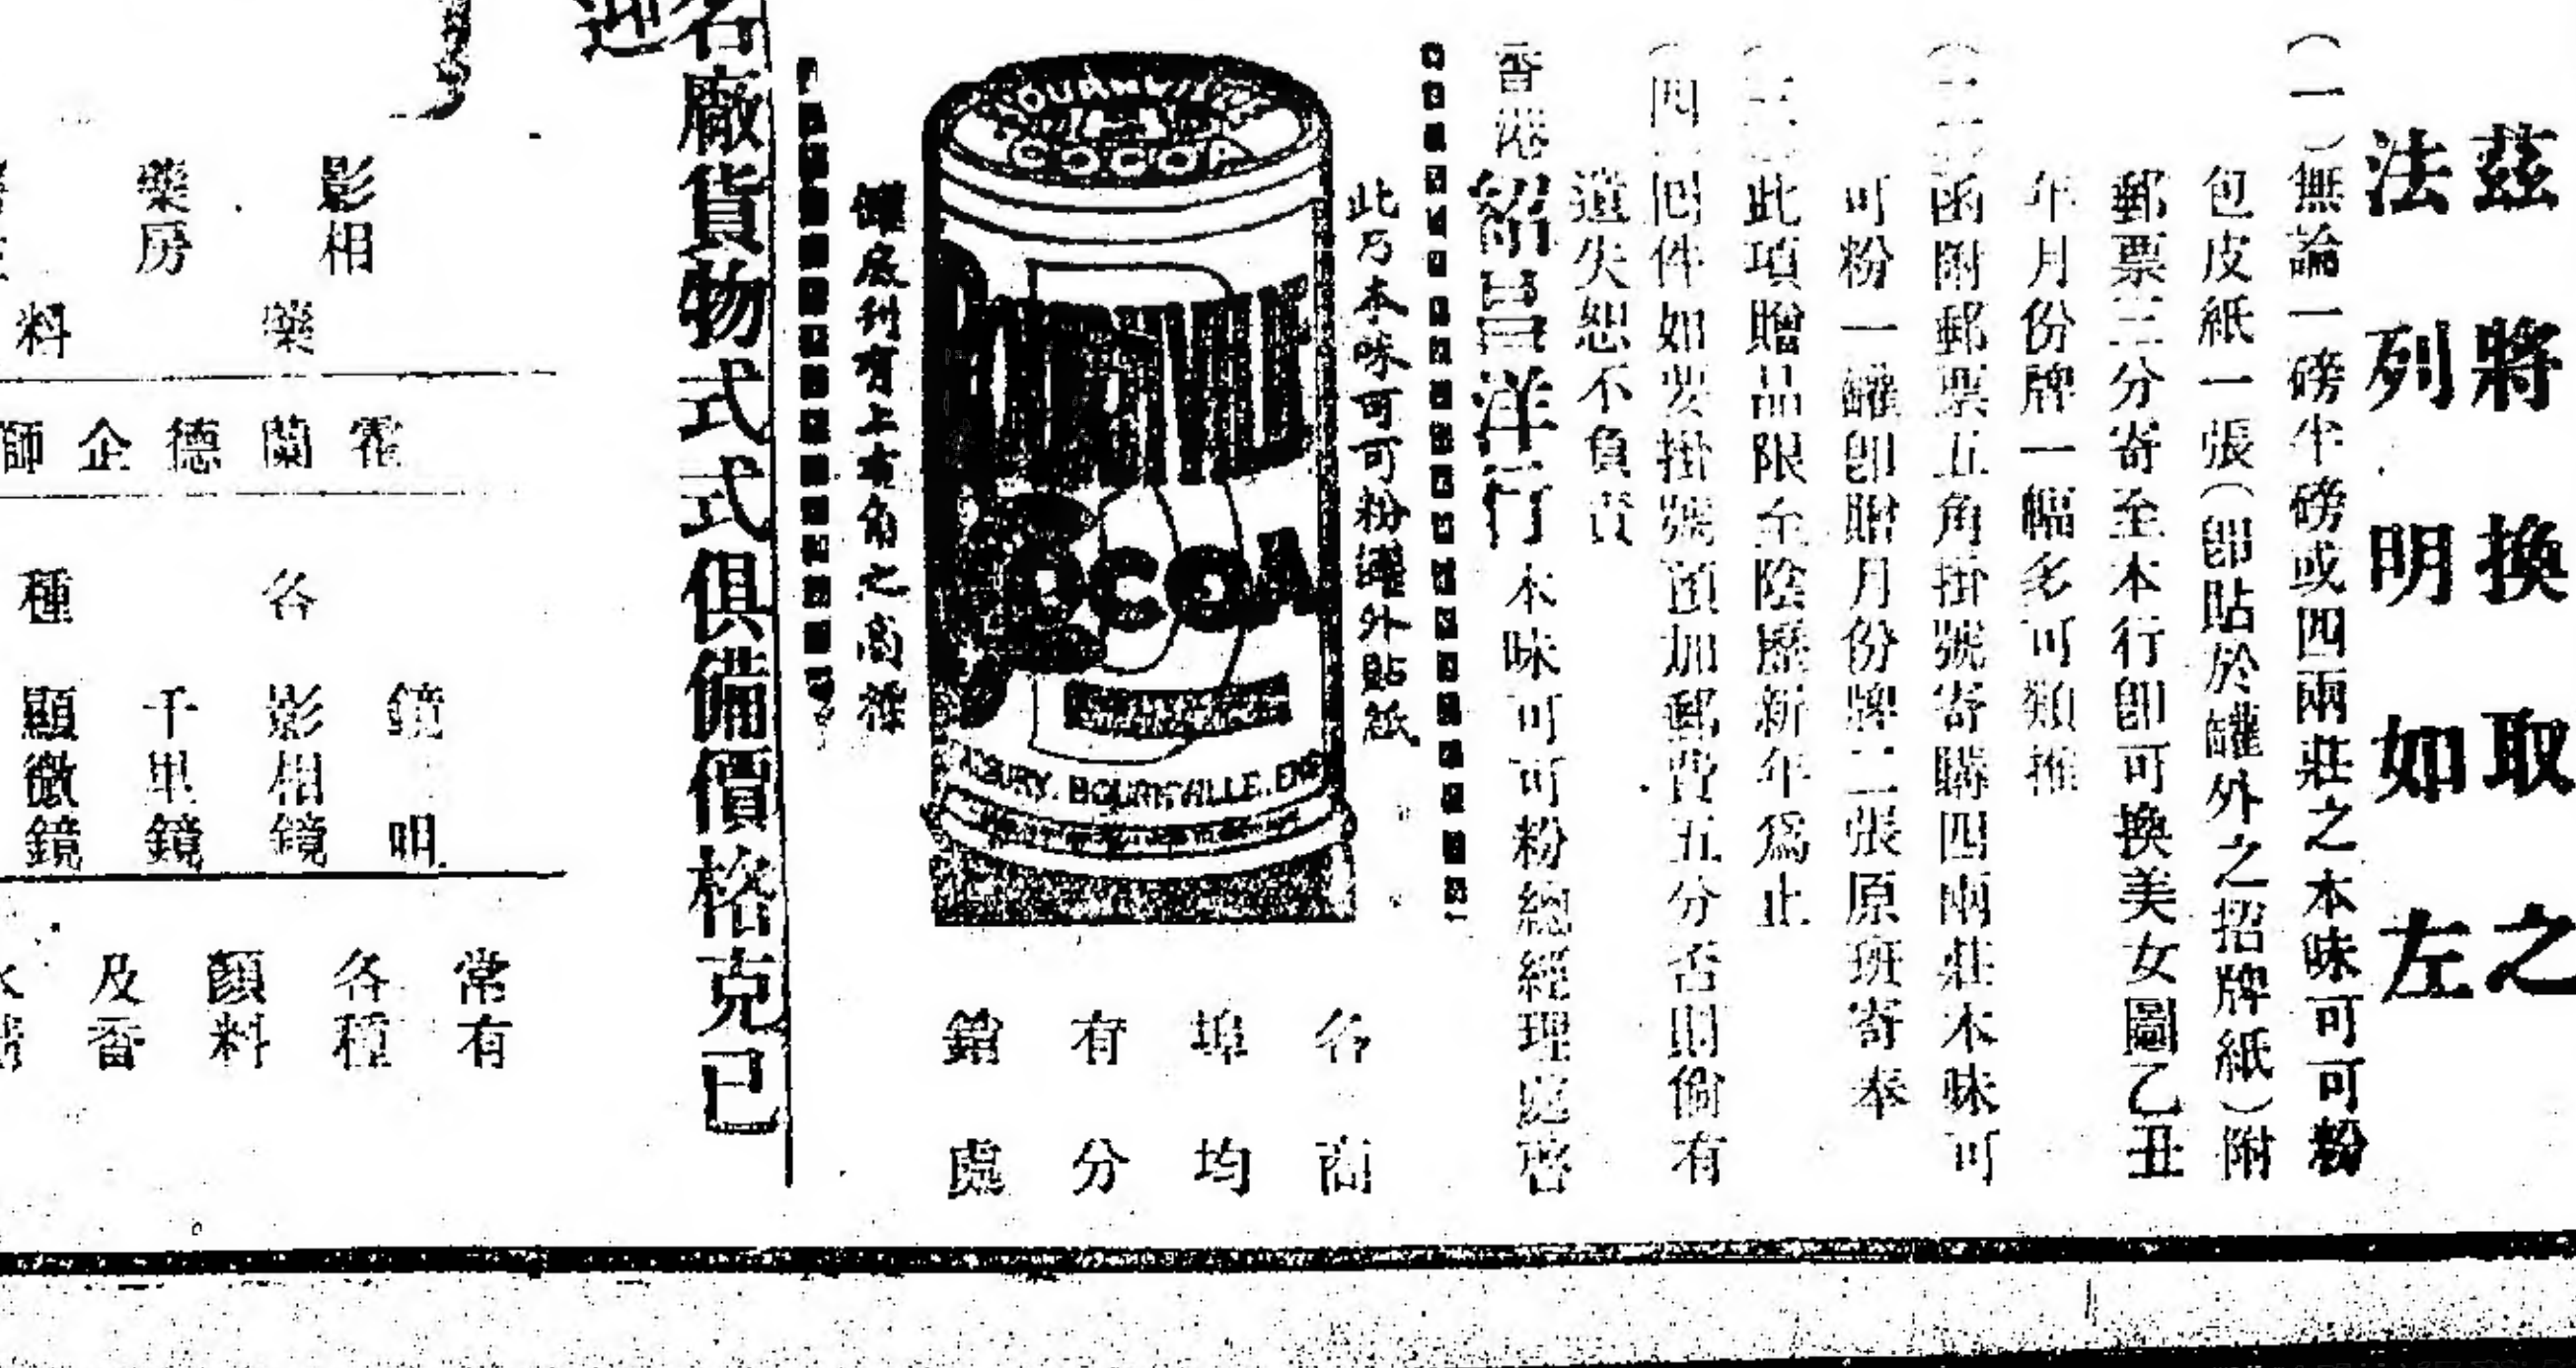 茲將換取之
法列明如左
(一)無論一磅半磅或四兩莊之本味可可粉
包皮紙一張(卽貼於罐外之招牌紙)附
郵票三分寄至本行卽可換美女圖乙丑
年月份牌一幅多可類推
(二)函附郵票五角掛號寄購四兩莊本味可
可粉一罐卽贈月份牌二張原班寄奉
(三)此項贈品限至陰歷新年爲止
(四)囘件如要掛號預加郵費五分否則倘有
遺失恕不負責
香港紹昌洋行本味可可粉總經理處啓
此乃本味可可粉罐外貼紙
BOURNVILLE
COCOA
BOURNVILLE
COCOA
BOURNVILLE, ENG
罐底刋有上右角之商標
各商
埠均
有分
銷處
名廠貨物式式俱備價格克已
迎
影相
藥房
藥
料
霍蘭德企師
各
種
鏡
呾
影相鏡
千里鏡
顯微鏡
常有
各種
顏料
及香